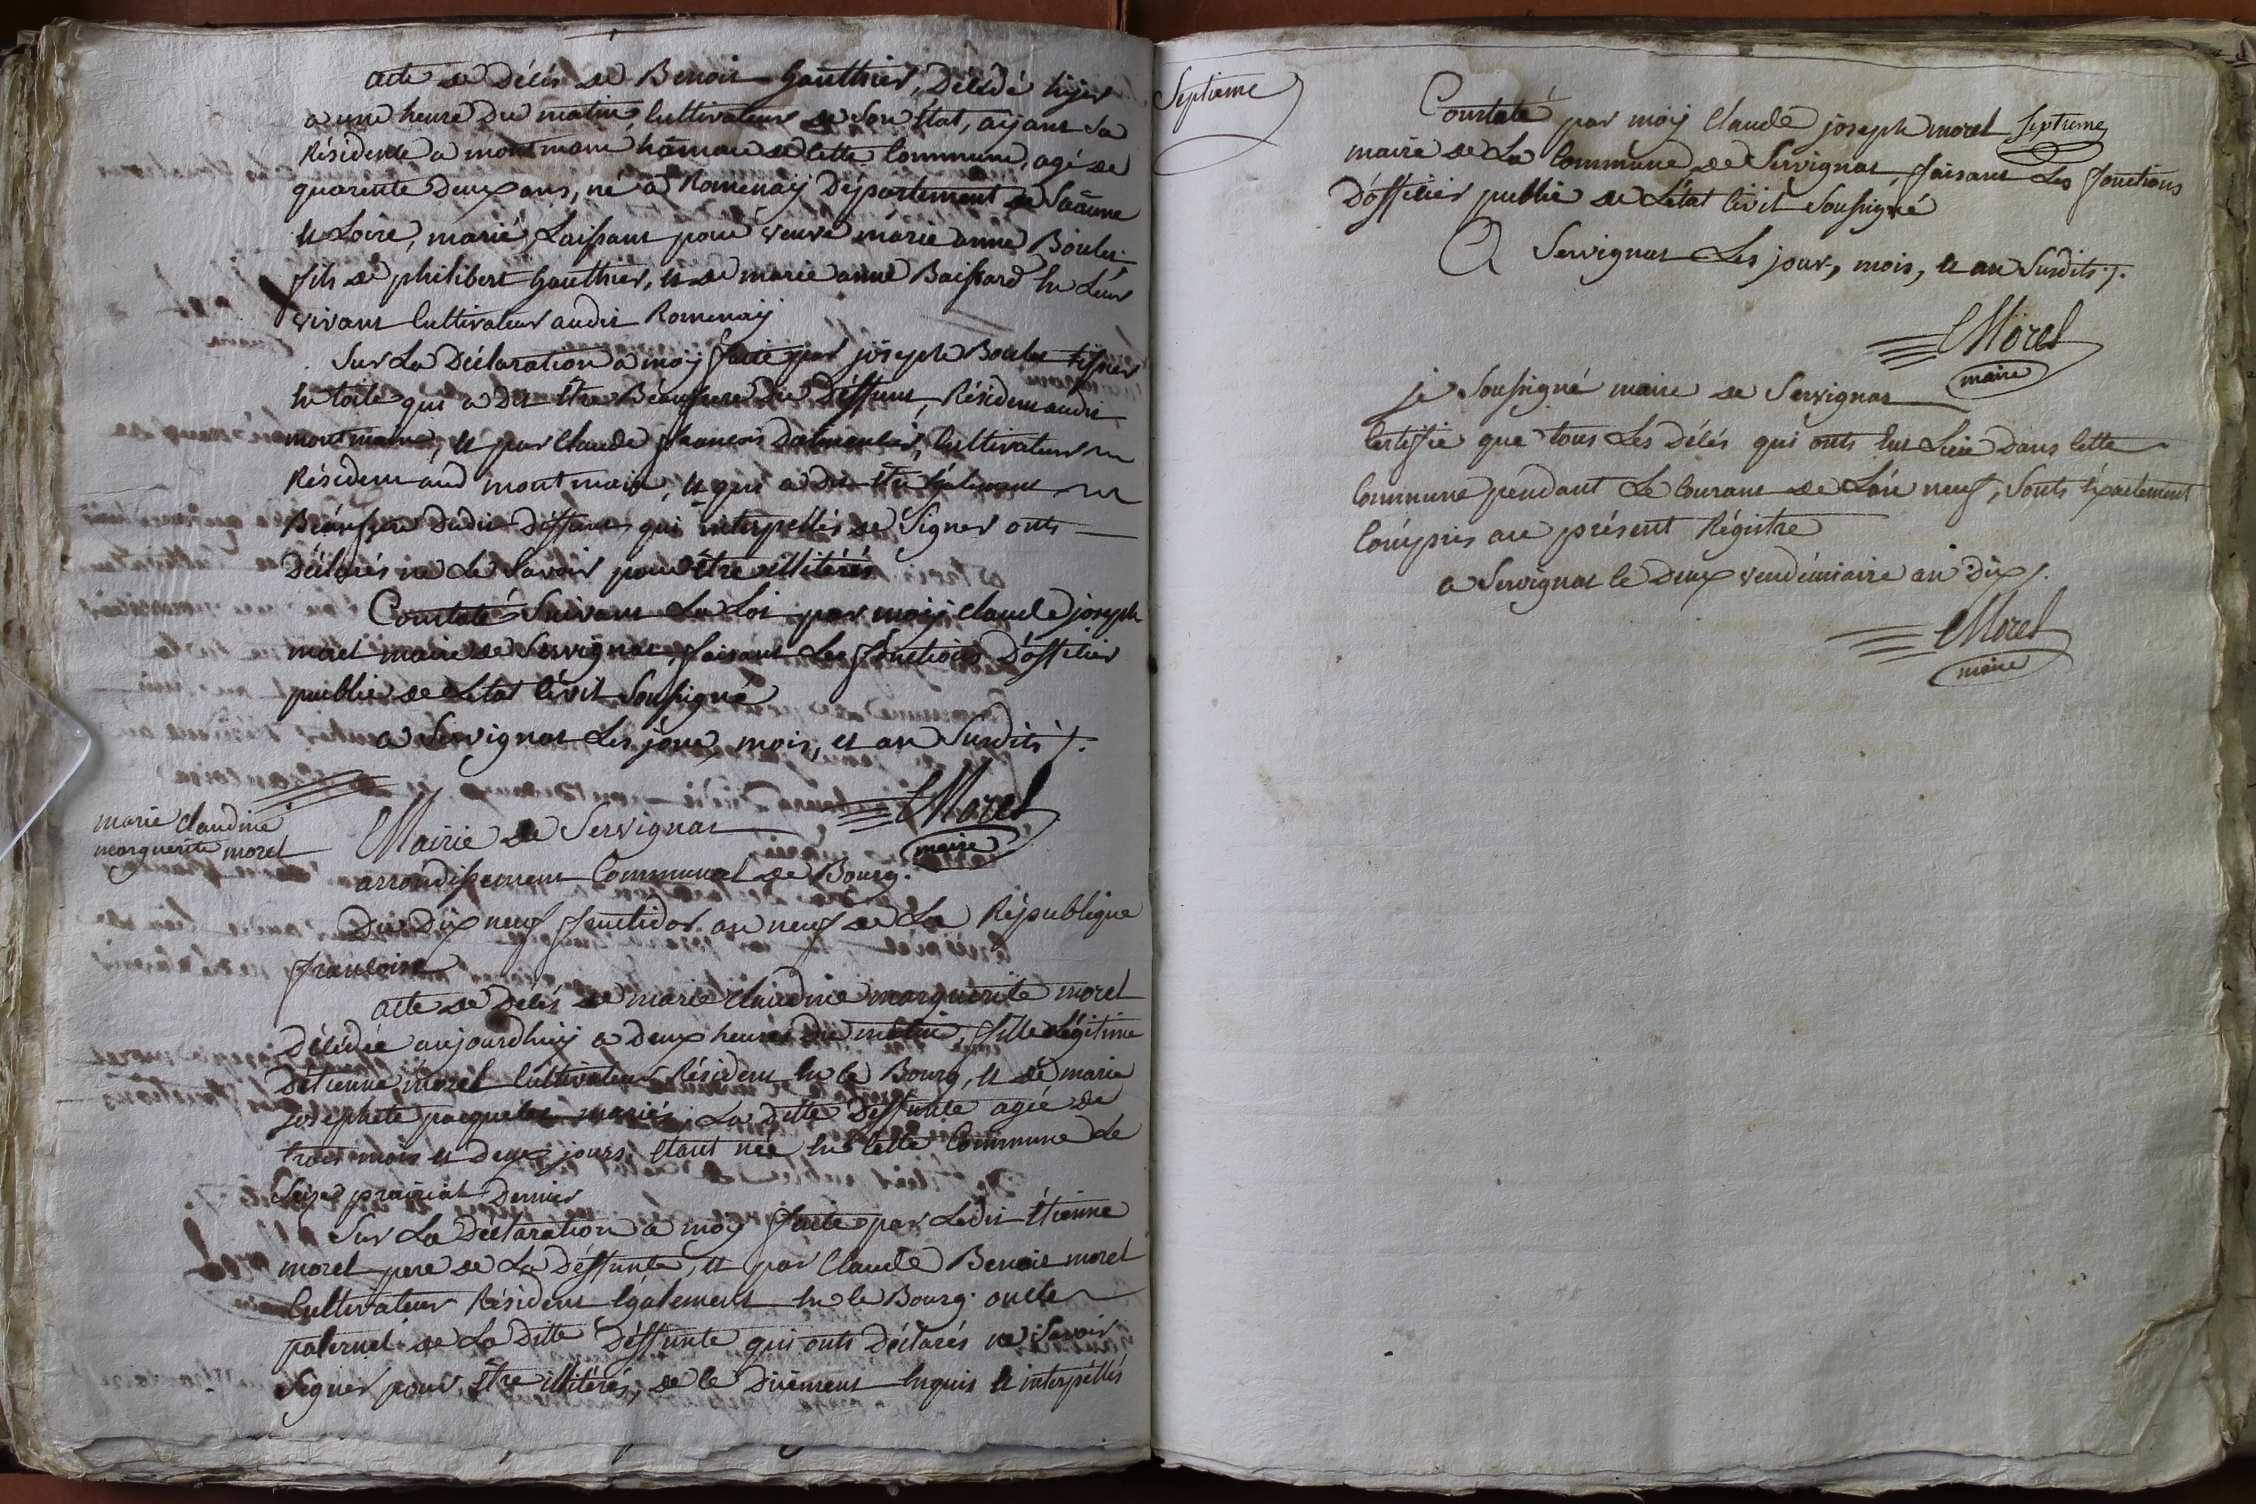 acte de Décés de Benoit Gauthier, Décédé hyer
a une heure du matin, Cultivateur de Son état, ayant Sa
Résidence a montmain hâmau de Cette Commune, agé de
quarente Deux ans, né à Romenaÿ Département de Saônne
et Loire, marié Laissant pour veuve marie anne Boulet
fils de philibert Gauthier, et de marie anne Baissard En Leur
vivant Cultivateur audit Romenaÿ
Sur La Déclaration a moÿ faite par joseph Boulet tisser
En toile qui a Dit être Béaufrere Du Déffunt, Résident audit
montmain, et par Claude françois Cultivateur
Résident aud montmain, et qui a dit être Également
Béaufrere Dudit Déffunt qui interpellés de Signer onts
Déclarés ne Le Savoir pour être illitérés
Constaté Suivant La Loi par moÿ Claude joseph
morel maire de Servignat, faisant Les fonctions D'officier
public de L'état Civil Soussigné
a Servignat Les jour, mois, et an Susdits /.
Morel
maire
marie Claudine
marguerite morel
Mairie de Servignat
arrondissement Communal de Bourg.
Du Dix neuf fructidor an neuf de La République
françoise
acte de Décés de marie Claudine marguerite morel
Décédée aujourdhuÿ a Deux heures Du matin, fille Légitime
D'étienne morel Cultivateur Résident En le Bourg, et de marie
josephete pacquelet mariés, La ditte Déffunte agée de
trois mois et Deux jours, étant née En Cette Commune Le
Seize prairial Dernier
Sur La Déclaration a moÿ faite par Ledit Étienne
morel pere de La Déffunte, et par Claude Benoit morel
Cultivateur Résident Également En le Bourg oncle
paternel de La Ditte Déffunte qui onts Déclarés ne Savoir
Signer pour être illitérés, de le Duement Enquis et interpéllés
Septieme
Constaté par moÿ Claude joseph morel
Septieme
maire de La Commune de Servignat, faisant Les fonctions
D'officier public de L'état Civil Soussigné
A Servignat Les jour, mois, et an Susdits /.
Morel
maire
je Soussigné maire de Servignat
Certifie que tous Les Décés qui onts Eut Lieu Dans Cette
Commune pendant Le Courant de L'an neuf, Sonts Éxactement
Compris au présent Régistre
a Servignat le Deux vendémiaire an Dix /.
Morel
maire